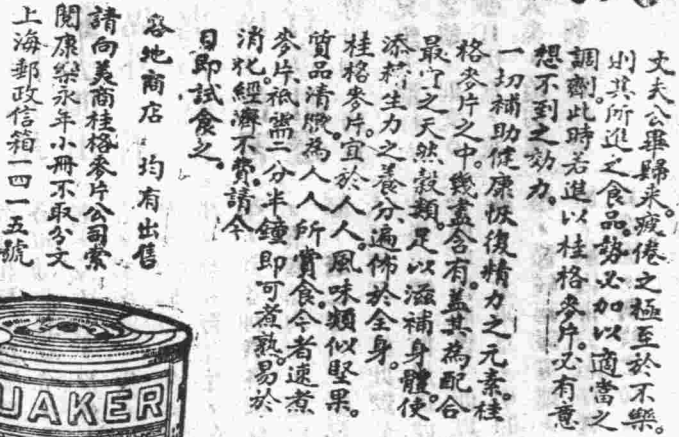 丈夫公畢歸来。疲倦之極至於不樂。
則其所進之食品。勢必加以適當之
調劑。此時若進以桂格麥片。必有意
想不到之効力。
一切補助健康恢復精力之元素。桂
格麥片之中。幾盡含有。蓋其為配合
最宜之天然穀類。足以滋補身體。使
添精生力之養分。遍佈於全身。
桂格麥片。宜於人人。風味類似堅果。
質品清潔。為人人所賞食。今者速煮
麥片。祗需二分半鐘。即可煮熟。易於
消化。經濟不費。請今
日即試食之。
各地商店 均有出售
請向美商桂格麥片公司索
閱康樂永年小冊不取分文
上海郵政信箱一四一五號
UAKER